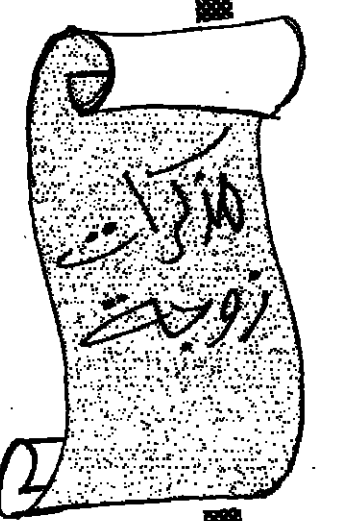 مذكرات
زوجة